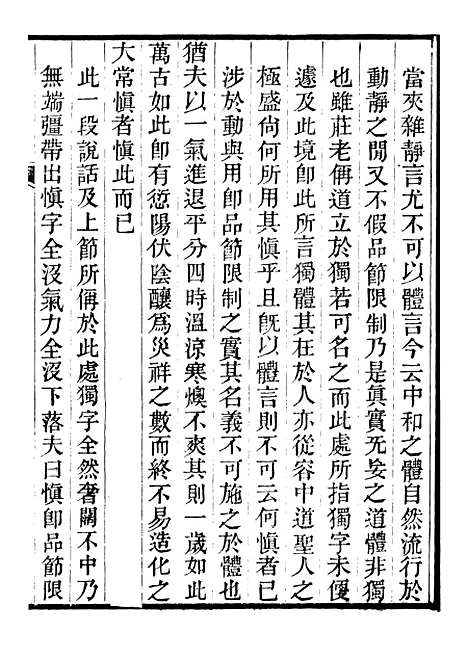 當夾雜靜言尤不可以體言今云中和之體自然流行於
動靜之閒又不假品節限制乃是眞實旡妄之道體非獨
也雖莊老偁道立於獨若可名之而此處所指獨字未優
遽及此境卽此所言獨體其在於人亦從容中道聖人之
極盛尙何所用其愼乎且旣以體言則不可云何愼者已
涉於動與用卽品節限制之實其名義不可施之於體也
猶夫以一氣進退平分四時溫涼寒燠不爽其則一歲如此
萬古如此卽有愆陽伏陰釀爲災祥之數而終不易造化之
大常愼者愼此而已
此一段說話及上節所偁於此處獨字全然奢闊不中乃
無端彊帶出愼字全沒氣力全沒下落夫曰愼卽品節限